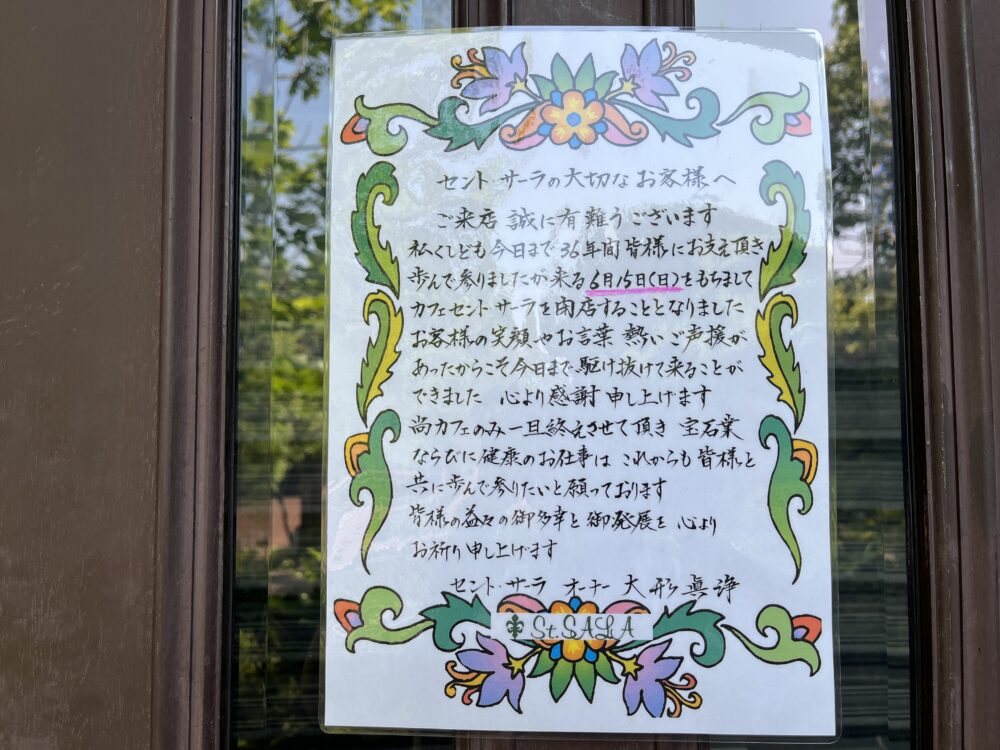 セント・サーラの大切なお客様へ
ご来店 誠に有難うございます
私くしども今日まで36年間皆様にお支え頂き
歩んで参りましたが来る6月15日(日)をもちまして
カフェセント・サーラを閉店することとなりました
お客様の笑顔やお言葉 熱いご声援が
あったからこそ今日まで駆け抜けて来ることが
できました 心より感謝申し上げます
尚カフェのみ一旦終えさせて頂き 宝石業
ならびに健康のお仕事は これからも皆様と
共に歩んで参りたいと願っております
皆様の益々の御多幸と御発展を 心より
お祈り申し上げます
セント・サーラ オーナー 大形眞浄
St.SALA